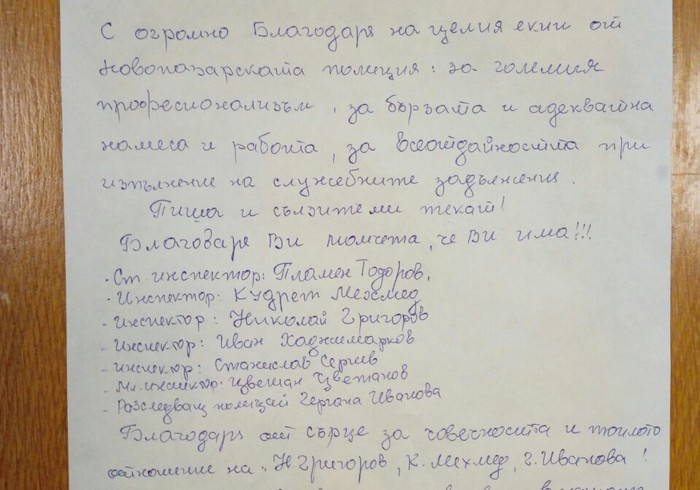 С огромно Благодаря на целия екип от
Новопазарската полиция: за големия
професионализъм, за бързата и адекватна
намеса и работа, за всеотдайността при
изпълнение на служебните задължения.
Пиша и сълзите ми текат!
Благодаря Ви момчета, че Ви има!!!
· Ст. инспектор: Пламен Тодоров.
· Инспектор: Кудрет Мехмед
- Инспектор: Николай Григоров
- Инспектор: Иван Хаджимарков
- Инспектор: Станислав Сергиев
- Мл. инспектор: Цветан Цветанов
- Разследващ полицай Гергана Иванова
Благодаря от сърце за човечността и топлото
отношение на: Н Григоров, К. Мехмед, Г. Иванова!